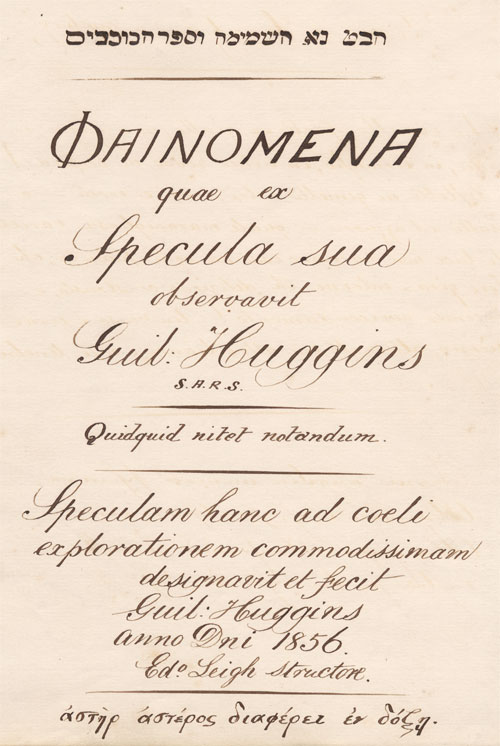 הבט נא השמימה וספר הכוכבים
ΦΑΙΝΟΜΕΝΑ
quae ex
Specula sua
observavit
Guil: Huggins
S.A.R.S.
Quidquid nitet notandum.
Speculam hanc ad coeli
explorationem commodissimam
designavit et fecit
Guil: Huggins
anno Dni 1856.
Edo Leigh structore.
ἀστὴρ ἀστέρος διαφέρει ἐν δόξῃ.